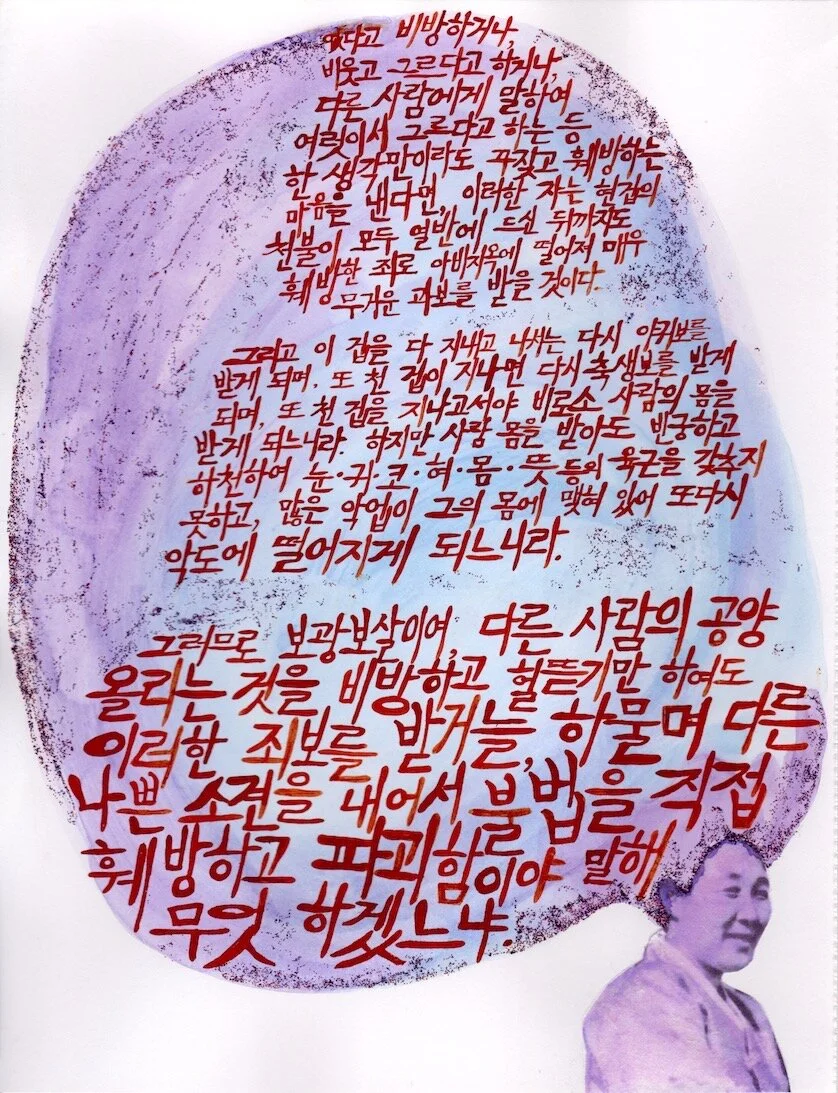 없다고 비방하거나,
비웃고 그르다고 하거나,
다른 사람에게 말하여
여럿이서 그르다고 하는 등
한 생각만이라도 꾸짖고 훼방하는
마음을 낸다면, 이러한 자는 현겁의
천불이 모두 열반에 드신 뒤까지도
훼방한 죄로 아비지옥에 떨어져 매우
무거운 과보를 받을 것이다.
그리고 이 겁을 다 지내고 나서는 다시 아귀보를
받게 되며, 또 천 겁이 지나면 다시 축생보를 받게
되며, 또 천 겁을 지나고서야 비로소 사람의 몸을
받게 되느니라. 하지만 사람 몸을 받아도 빈궁하고
하천하여 눈·귀·코·혀·몸·뜻 등의 육근을 갖추지
못하고, 많은 악업이 그의 몸에 맺혀 있어 또다시
악도에 떨어지게 되느니라.
그러므로 보광보살이여, 다른 사람의 공양
올리는 것을 비방하고 헐뜯기만 하여도
이러한 죄보를 받거늘, 하물며 다른
나쁜 소견을 내어서 불법을 직접
훼방하고 파괴함이야 말해
무엇 하겠느냐.